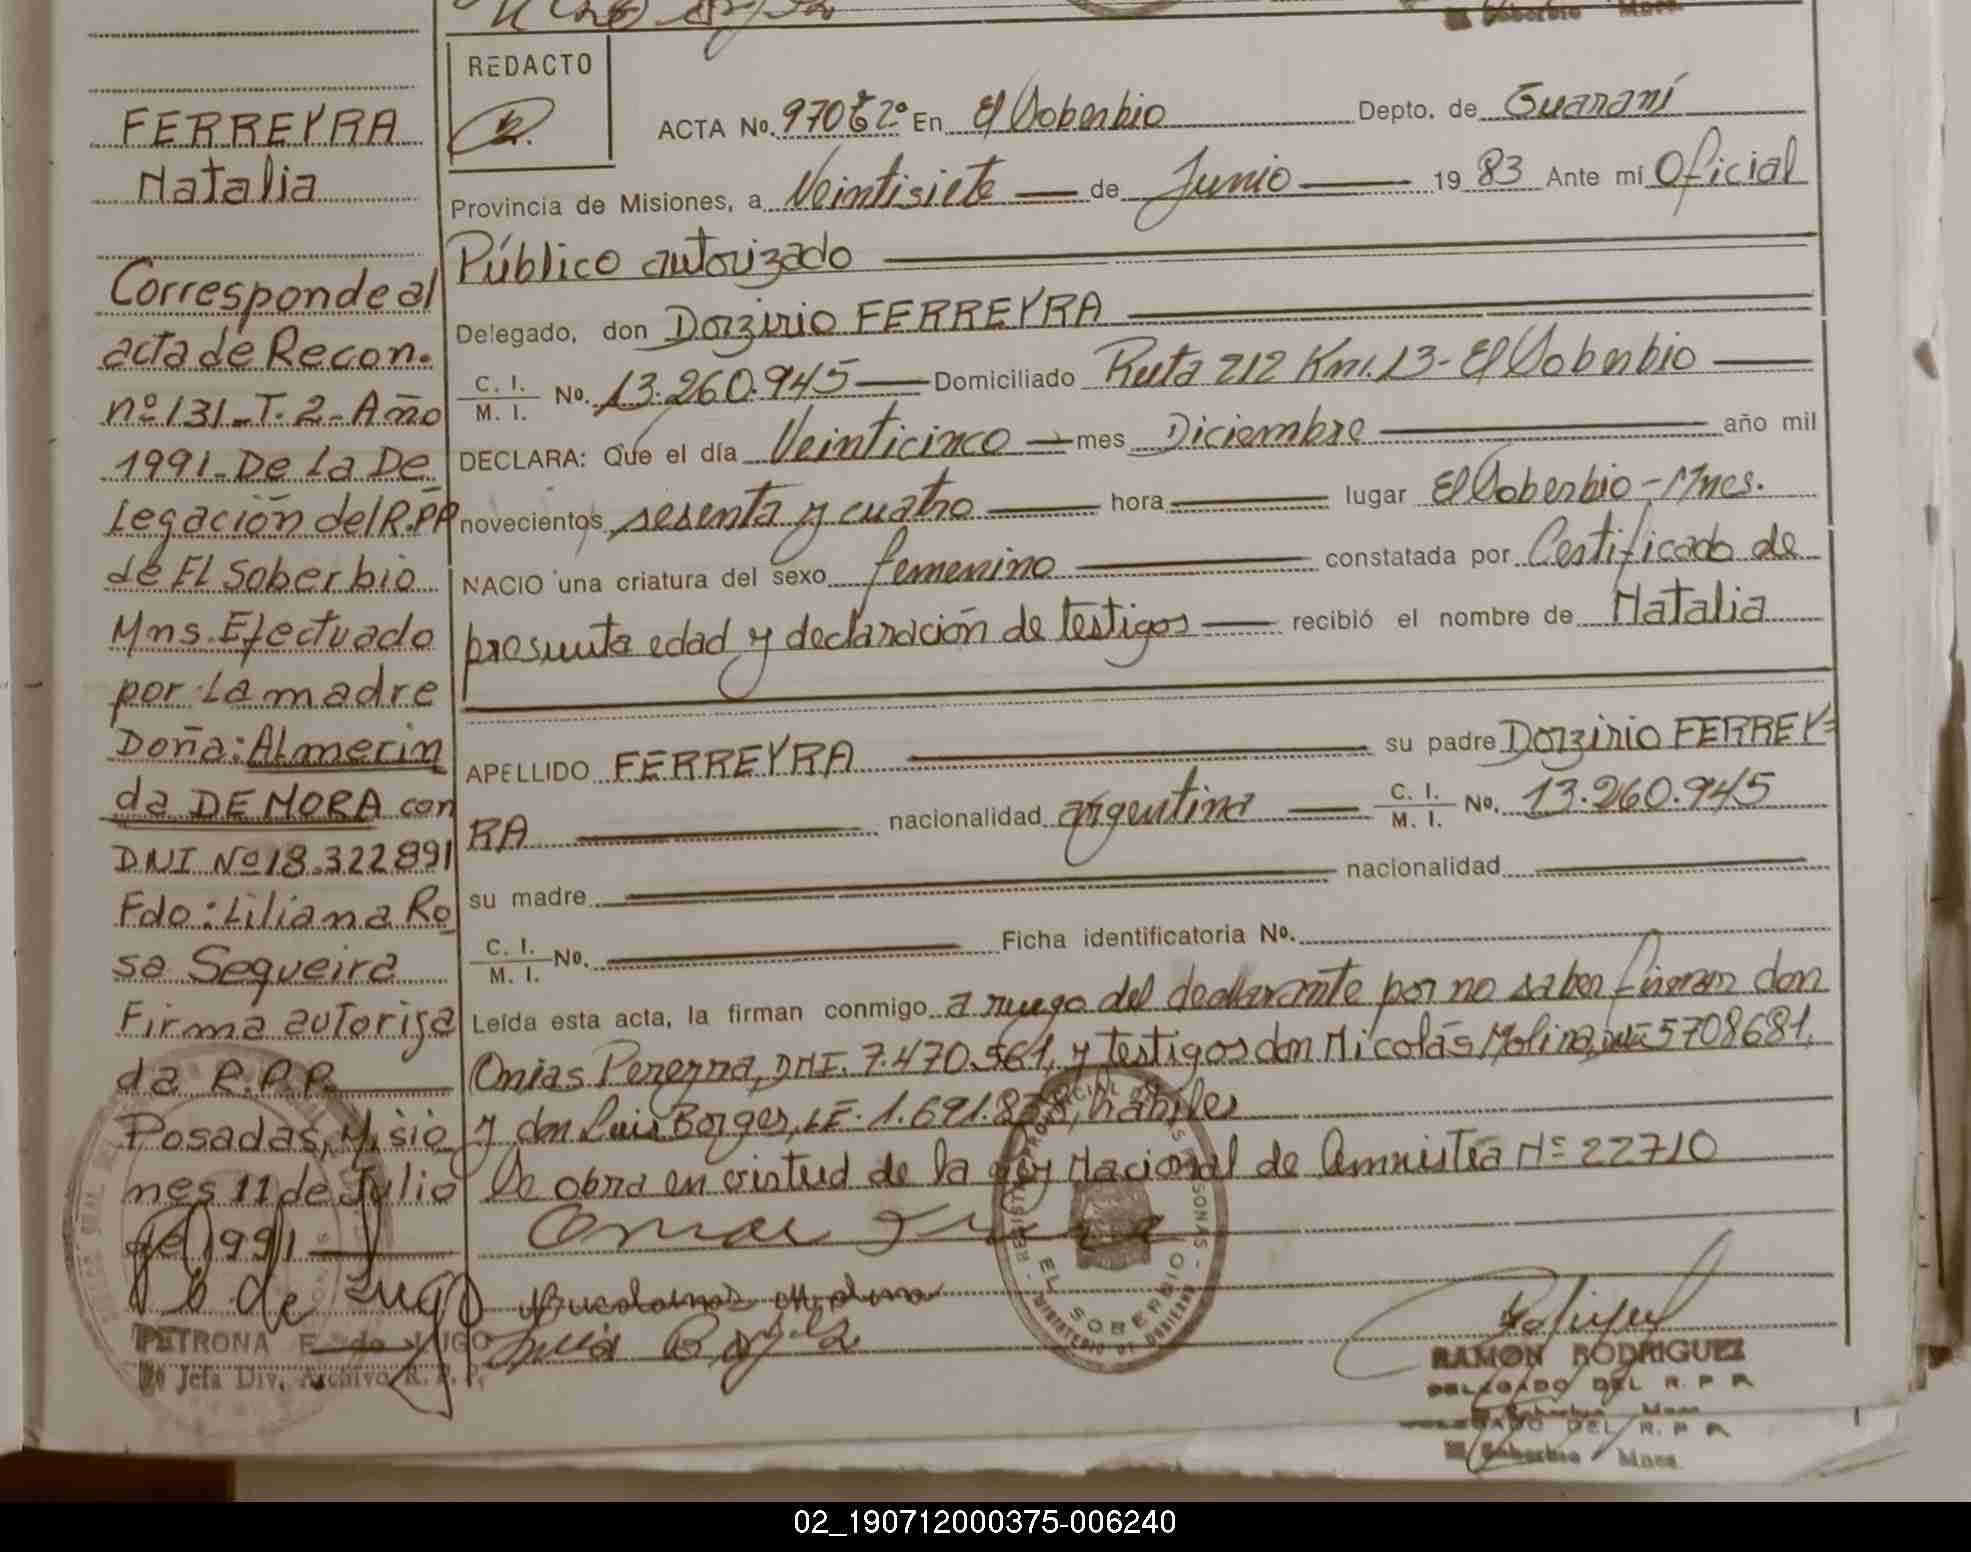 FERREYRA
Natalia
Corresponde al
acta de Recon.
nº 131_T. 2_ Año
1991_ De La De
Legación del R.P.P
de El Soberbio
Mns. Efectuado
por la madre
Doña: Almerin
da DE MORA con
DNI Nº 18.322891
Fdo: Liliana Ro
sa Sequeira
Firma autoriza
da R.P.P.
Posadas, Misio
nes 11 de Julio
de 1991
PETRONA E. de LUGO
Jefa Div. Archivo R. P. P.
REDACTO
ACTA No. 970 Tº 2º En El Soberbio Depto. de Guaraní
Provincia de Misiones, a Veintisiete de Junio 19 83 Ante mí Oficial
Público autorizado
Delegado, don Dorzirio FERREYRA
C. I.
M. I. No. 13.260.945 Domiciliado Ruta 212 Km. 13 - El Soberbio
DECLARA: Que el día Veinticinco mes Diciembre año mil
novecientos sesenta y cuatro hora lugar El Soberbio - Mnes.
NACIO una criatura del sexo femenino constatada por Certificado de
presunta edad y declaración de testigos recibió el nombre de Natalia
APELLIDO FERREYRA su padre Dorzirio FERREY=
RA nacionalidad argentina C. I.
M. I. No. 13.260.945
su madre nacionalidad
C. I.
M. I. No. Ficha identificatoria No.
Leída esta acta, la firman conmigo a ruego del declarante por no saber firmar don
Onias Pereyra, DNI. 7.470.561, y testigos don Nicolás Molina, 5708681,
y don Luis Borges, LE. 1.691. hábiles
Se obra en virtud de la Ley Nacional de Amnistía Nº 22710
REGISTRO PROVINCIAL DE LAS PERSONAS
EL SOBERBIO
MINISTERIO DE GOBIERNO
RAMON RODRIGUEZ
DELEGADO DEL R. P. P.
El Soberbio Mnes.
DELEGADO DEL R. P. P.
El Soberbio Mnes.
02_190712000375-006240